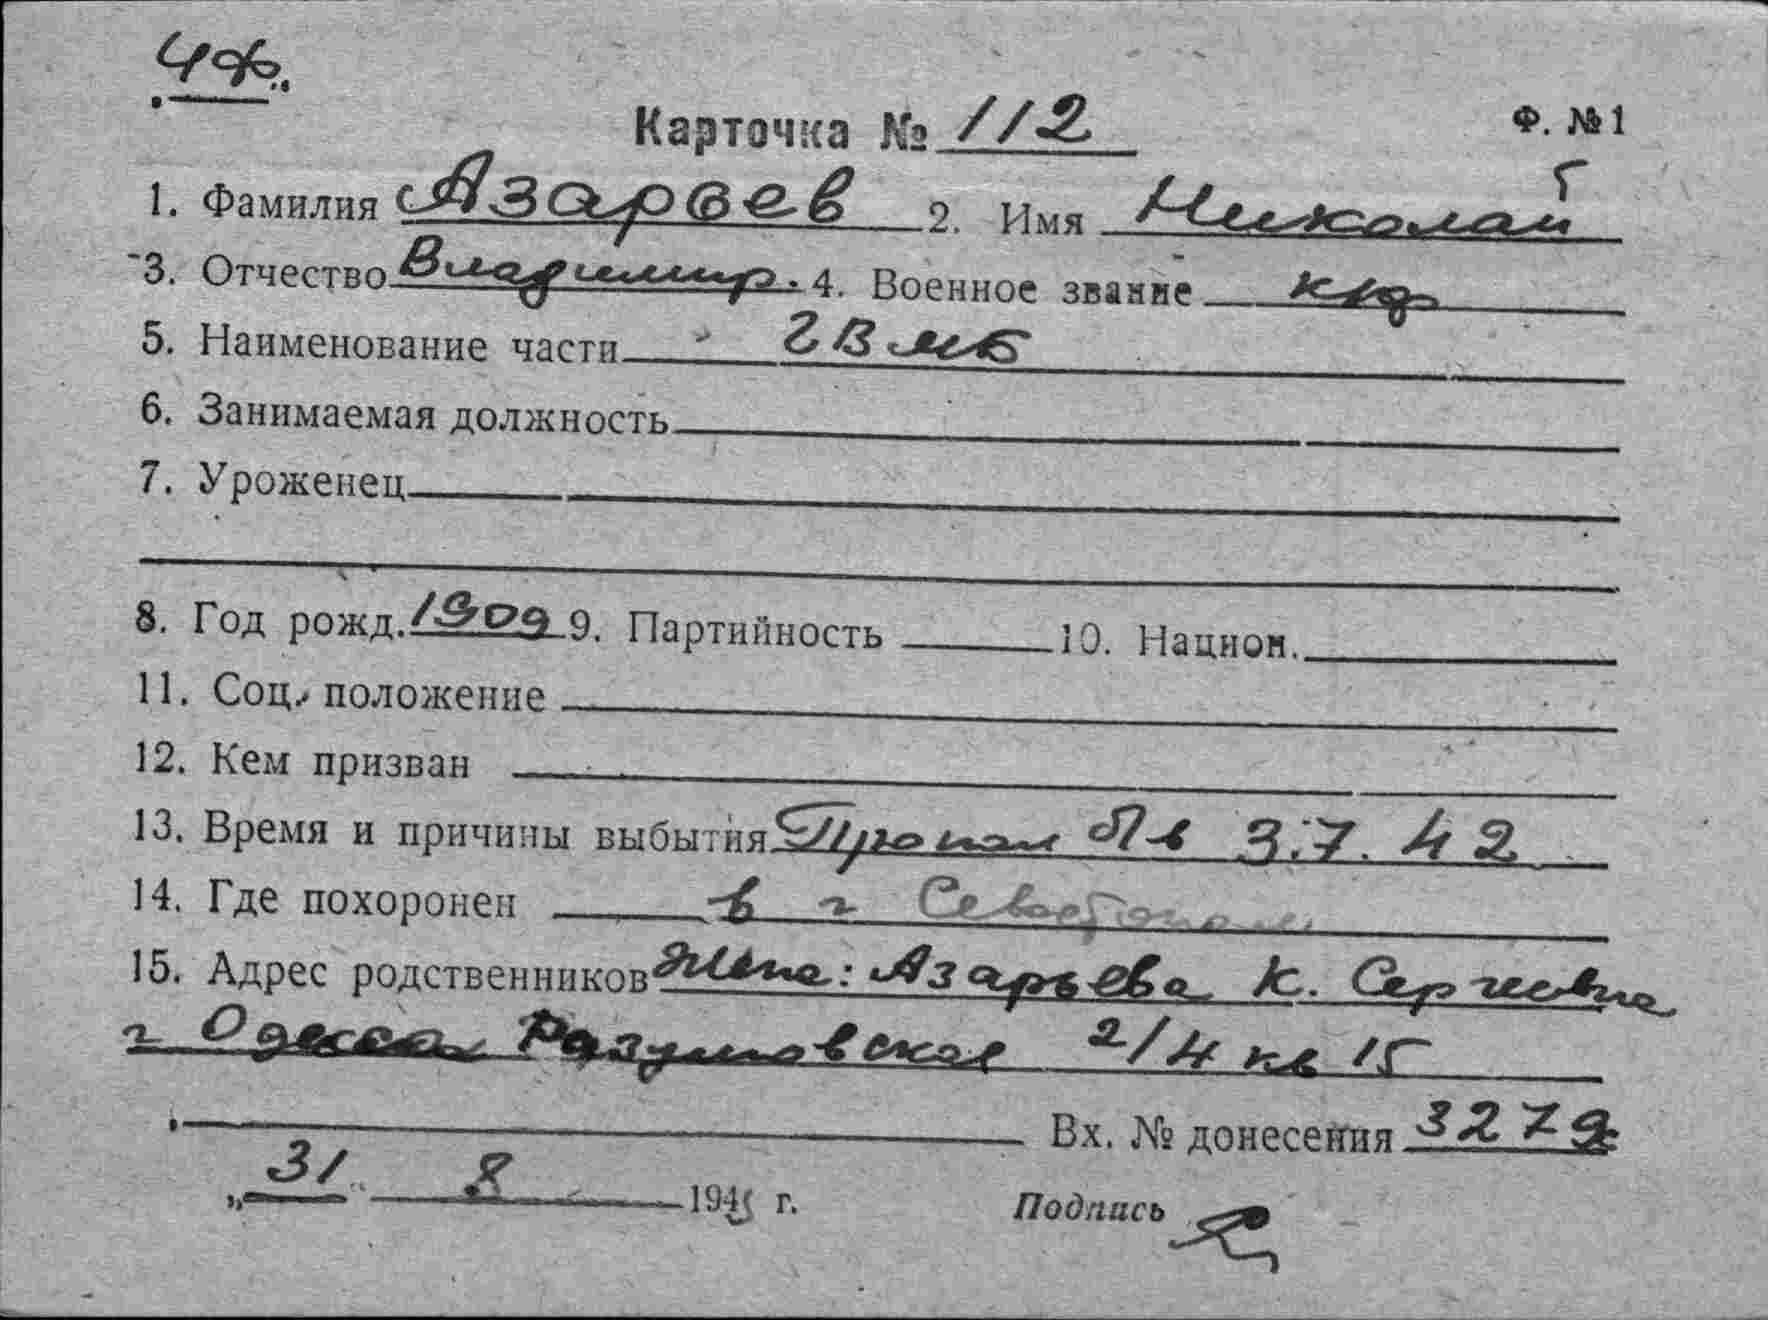 ЧФ.
Карточка № 112
Ф. №1
1. Фамилия Азарьев 2. Имя Николай
3. Отчество Владимир. 4. Военное звание к-р
5. Наименование части ГВМБ
6. Занимаемая должность
7. Уроженец
8. Год рожд. 1909 9. Партийность 10. Национ.
11. Соц. положение
12. Кем призван
13. Время и причины выбытия Пропал 3.7.42
14. Где похоронен в г Севастополе
15. Адрес родственников Жена: Азарьева К. Сергеевна
г Одесса Разумовская 2/4 кв 15
Вх. № донесения 3279
„31 8 1945 г. Подпись